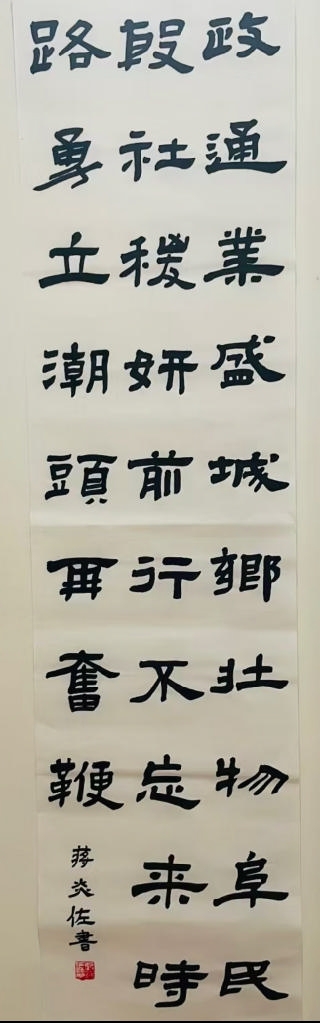 政通業盛城鄉壯物阜民
殷社稷妍前行不忘来時
路勇立潮頭再奮鞭
蒋炎佐書